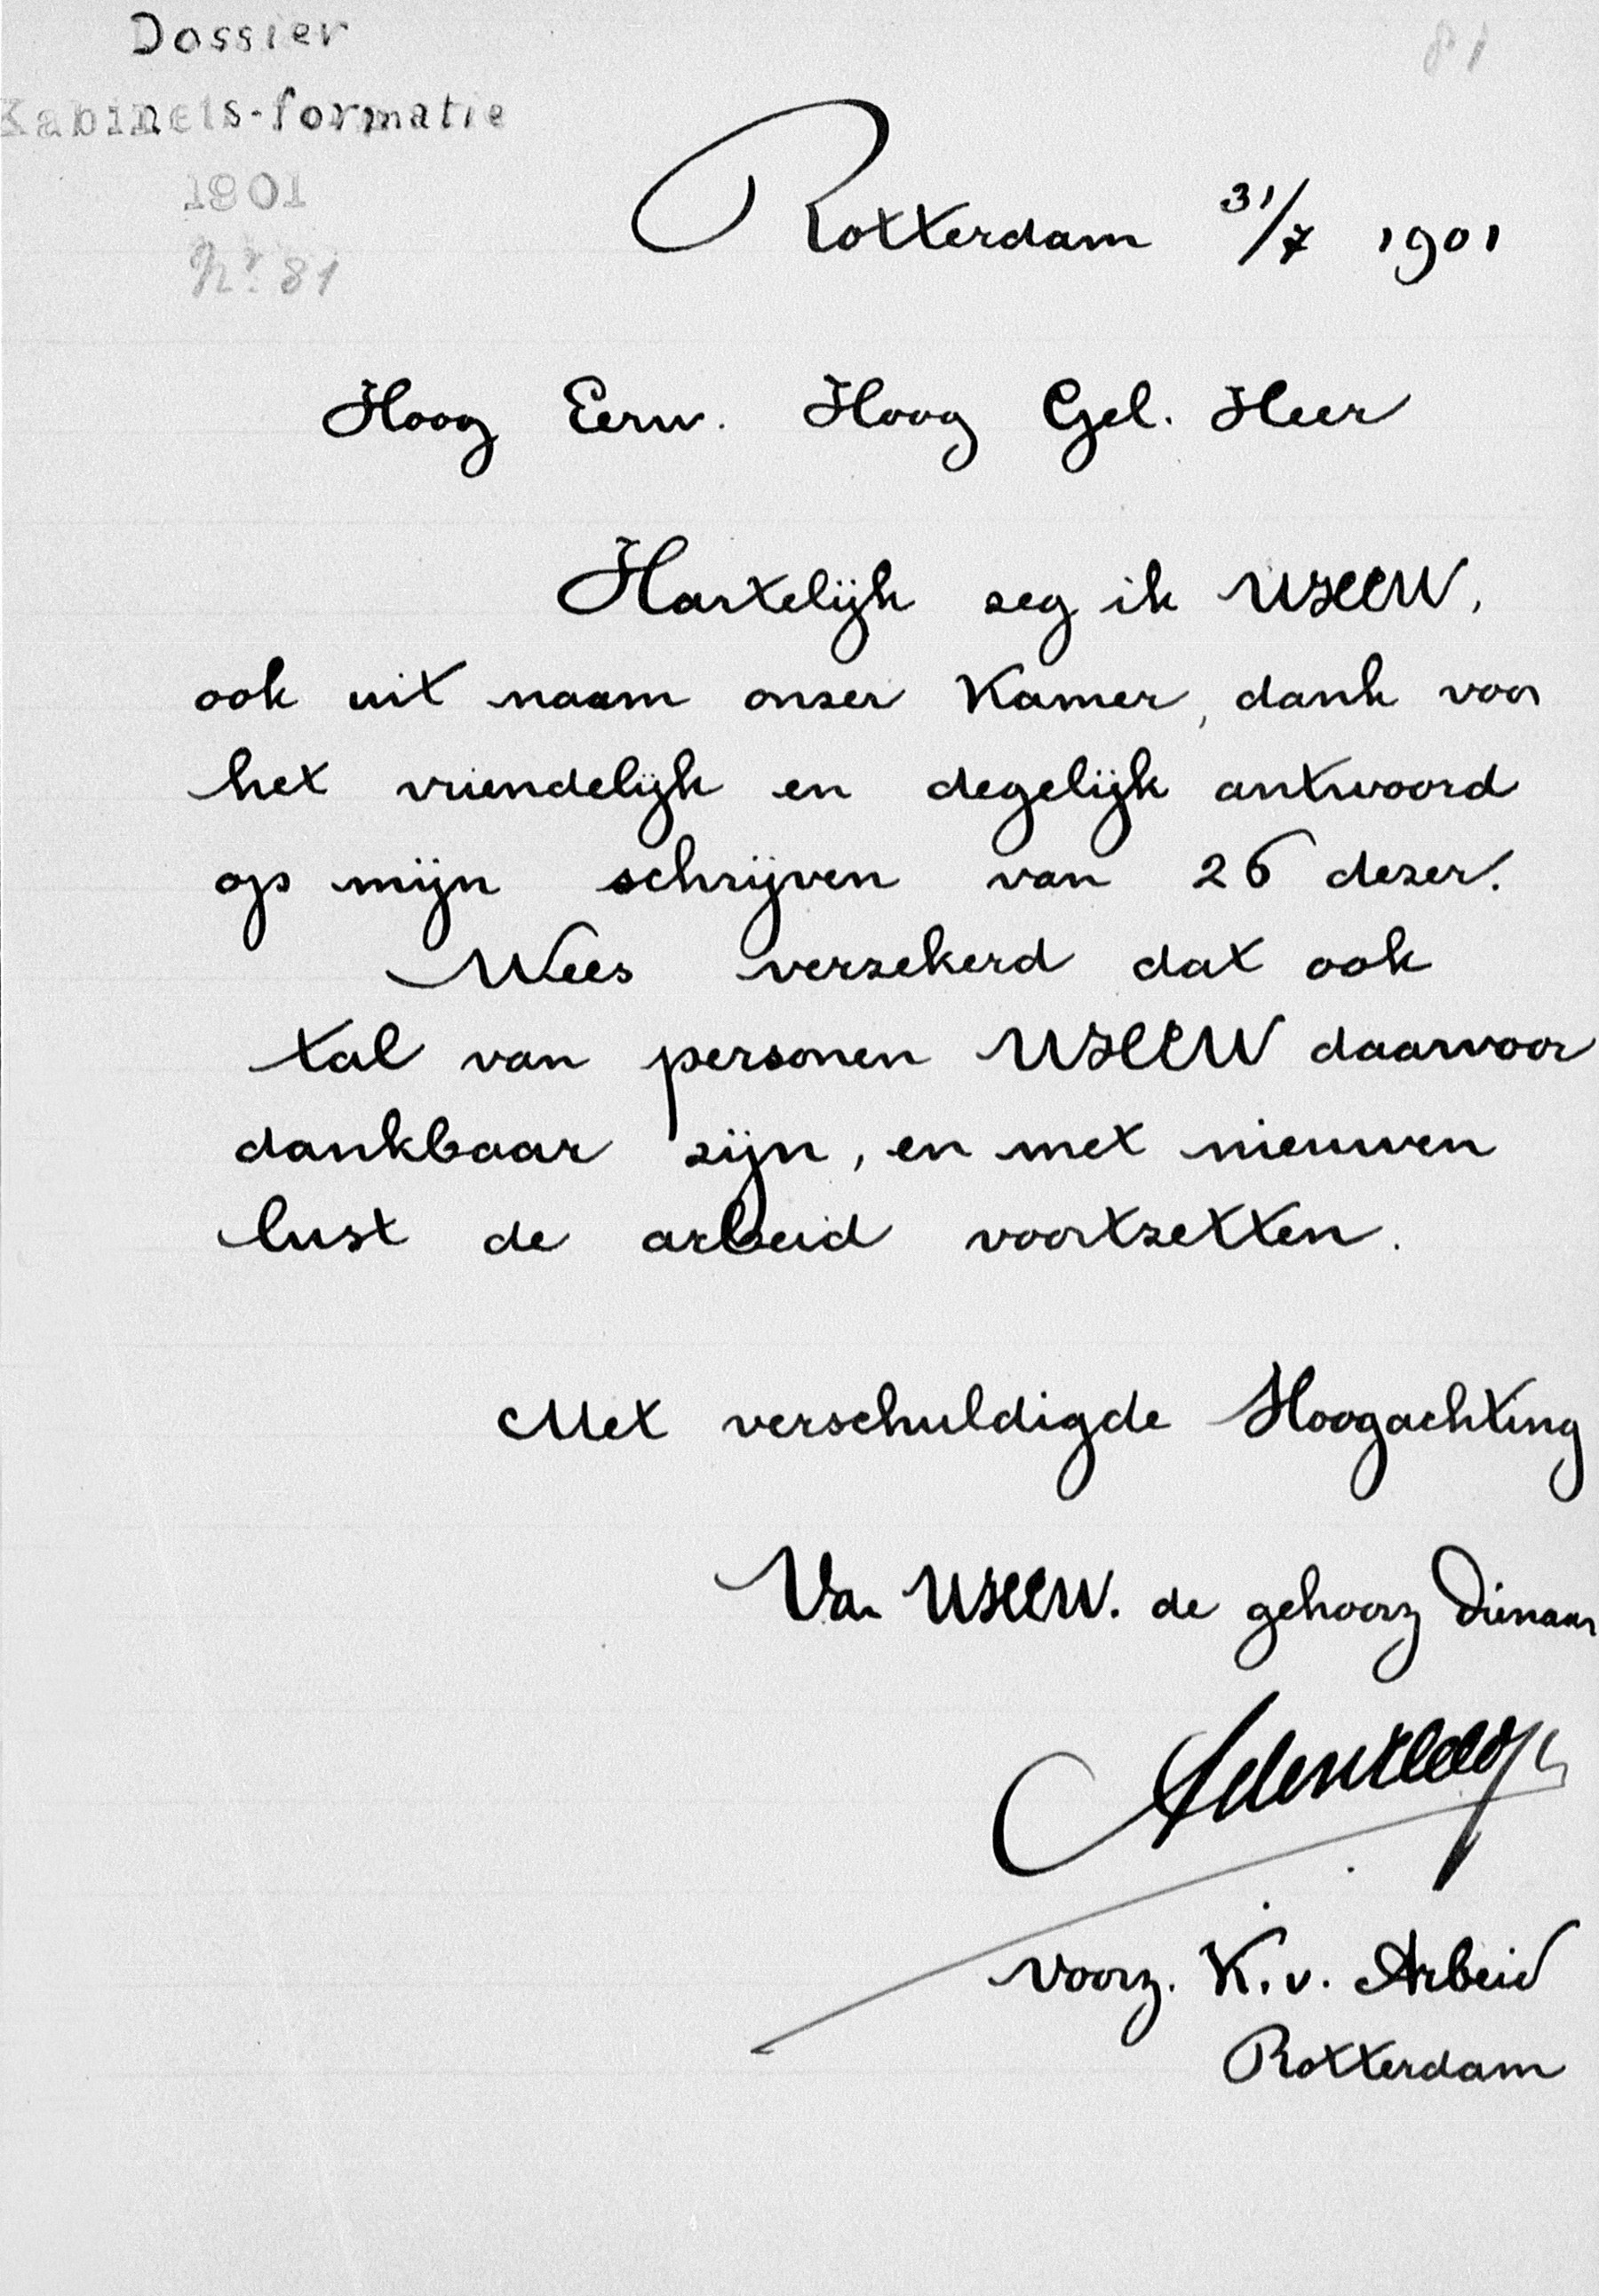 Dossier
Kabinets-formatie
1901
Nr. 81
81
Rotterdam 31/7 1901
Hoog Eerw. Hoog Gel. Heer
Hartelijk zeg ik UHEW,
ook uit naam onzer Kamer, dank voor
het vriendelijk en degelijk antwoord
op mijn schrijven van 26 dezer.
Wees verzekerd dat ook
tal van personen UHEW daarvoor
dankbaar zijn, en met nieuwen
lust de arbeid voortzetten.
Met verschuldigde Hoogachting
Van UHEW. de gehoorz Dienaar
voorz. K. v. Arbeid
Rotterdam